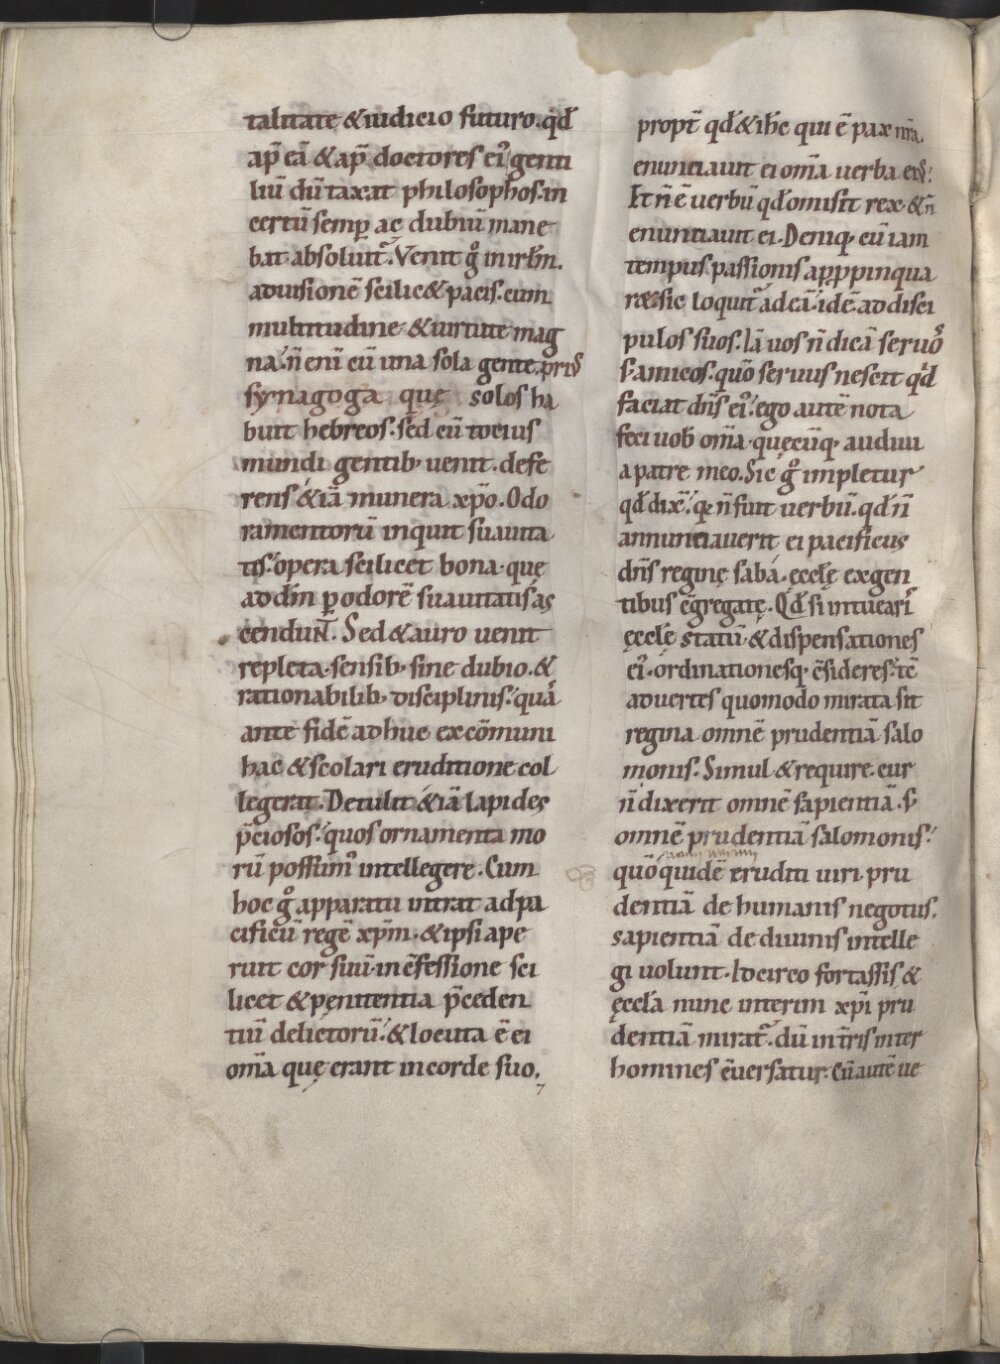 talitate & iudicio futuro. qd̄
ap̄ eā & ap̄ doctores ei᾽ genti
liū dūtaxat philosophos. in
certū semp̱ ac dubiū mane
bat absoluit᷑. Venit gͦ in irl̄m.
ad uisionē scilic& pacis. cum
multitudine & uirtute mag
na. n̄ eni cū una sola gente. pri᾽
synagoga quę solos ha
buit hebreos. sed cū tocius
mundi gentib᾽ uenit. defe
rens &iā munera xp̄o. Odo
ramentorū inquit suauita
tis opera scilicet bona. quę
ad dm̄ p̱ odorē suauitatis as
cenduNT. Sed & auro uenit
repleta. sensib᾽ sine dubio. &
rationabilib᾽ disciplinis. quā
ante fidē adhuc ex cōmuni
hac & scolari eruditione col
legerat. Detulit &iā lapides
p̄ciosos. quos ornamenta mo
rū possum᾽ intellegere. Cum
hoc gͦ apparatu intrat ad pa
cificū regē xp̄m. & ipsi ape
ruit cor suū. in c̄fessione sci
licet & pęnitentia p̄ceden
tiū delictorū. & locuta ē ei
om̄a quę erant in corde suo.
propt̄ qd̄ & ih̄c qui ē pax nr̄a
enuntiauit ei om̄a uerba ei᾽.
Et n̄ ē uerbū qd̄ omisit rex. & n̄
enuntiauit ei. Deniq᾽ cū iam
tempus passionis app̱pinqua
r&. sic loquit᷑ ad eā. idē ad disci
pulos suos. Iā uos n̄ dicā seruoˢ
s᾽ amicos. quō seruus nescit qͥd
faciat dn̄s ei᾽. ego autē nota
feci uob᾽ om̄a. quęcūq᾽ audiui
a patre meo. Sic gͦ impletur
qd̄ dix̄. q᾽ n̄ fuit uerbū. qd̄ n̄
annuntiauerit ei pacificus
dn̄s reginę saba. ęccl̄ę ex gen
tibus c̄gregatę. Qd̄ si intueari᾽
ęccl̄ę statū. & dispensationes
ei᾽. ordinationesq᾽ c̄sideres. tc̄
aduertes quomodo mirata sit
regina omnē prudentiā salo
monis. Simul & require. cur
n̄ dixerit omnē sapientiā. s᾽
omnē prudentiā salomonis.
quō quidē eruditi uiri. pru
dentiā de humanis negotiis.
sapientiā de diuinis intelle
gi uolunt. Idcirco fortassis &
ęccl̄a nunc interim xp̄i pru
dentiā mirat᷑. dū in t̄ris inter
homines c̄uersatur. Cū autē ue